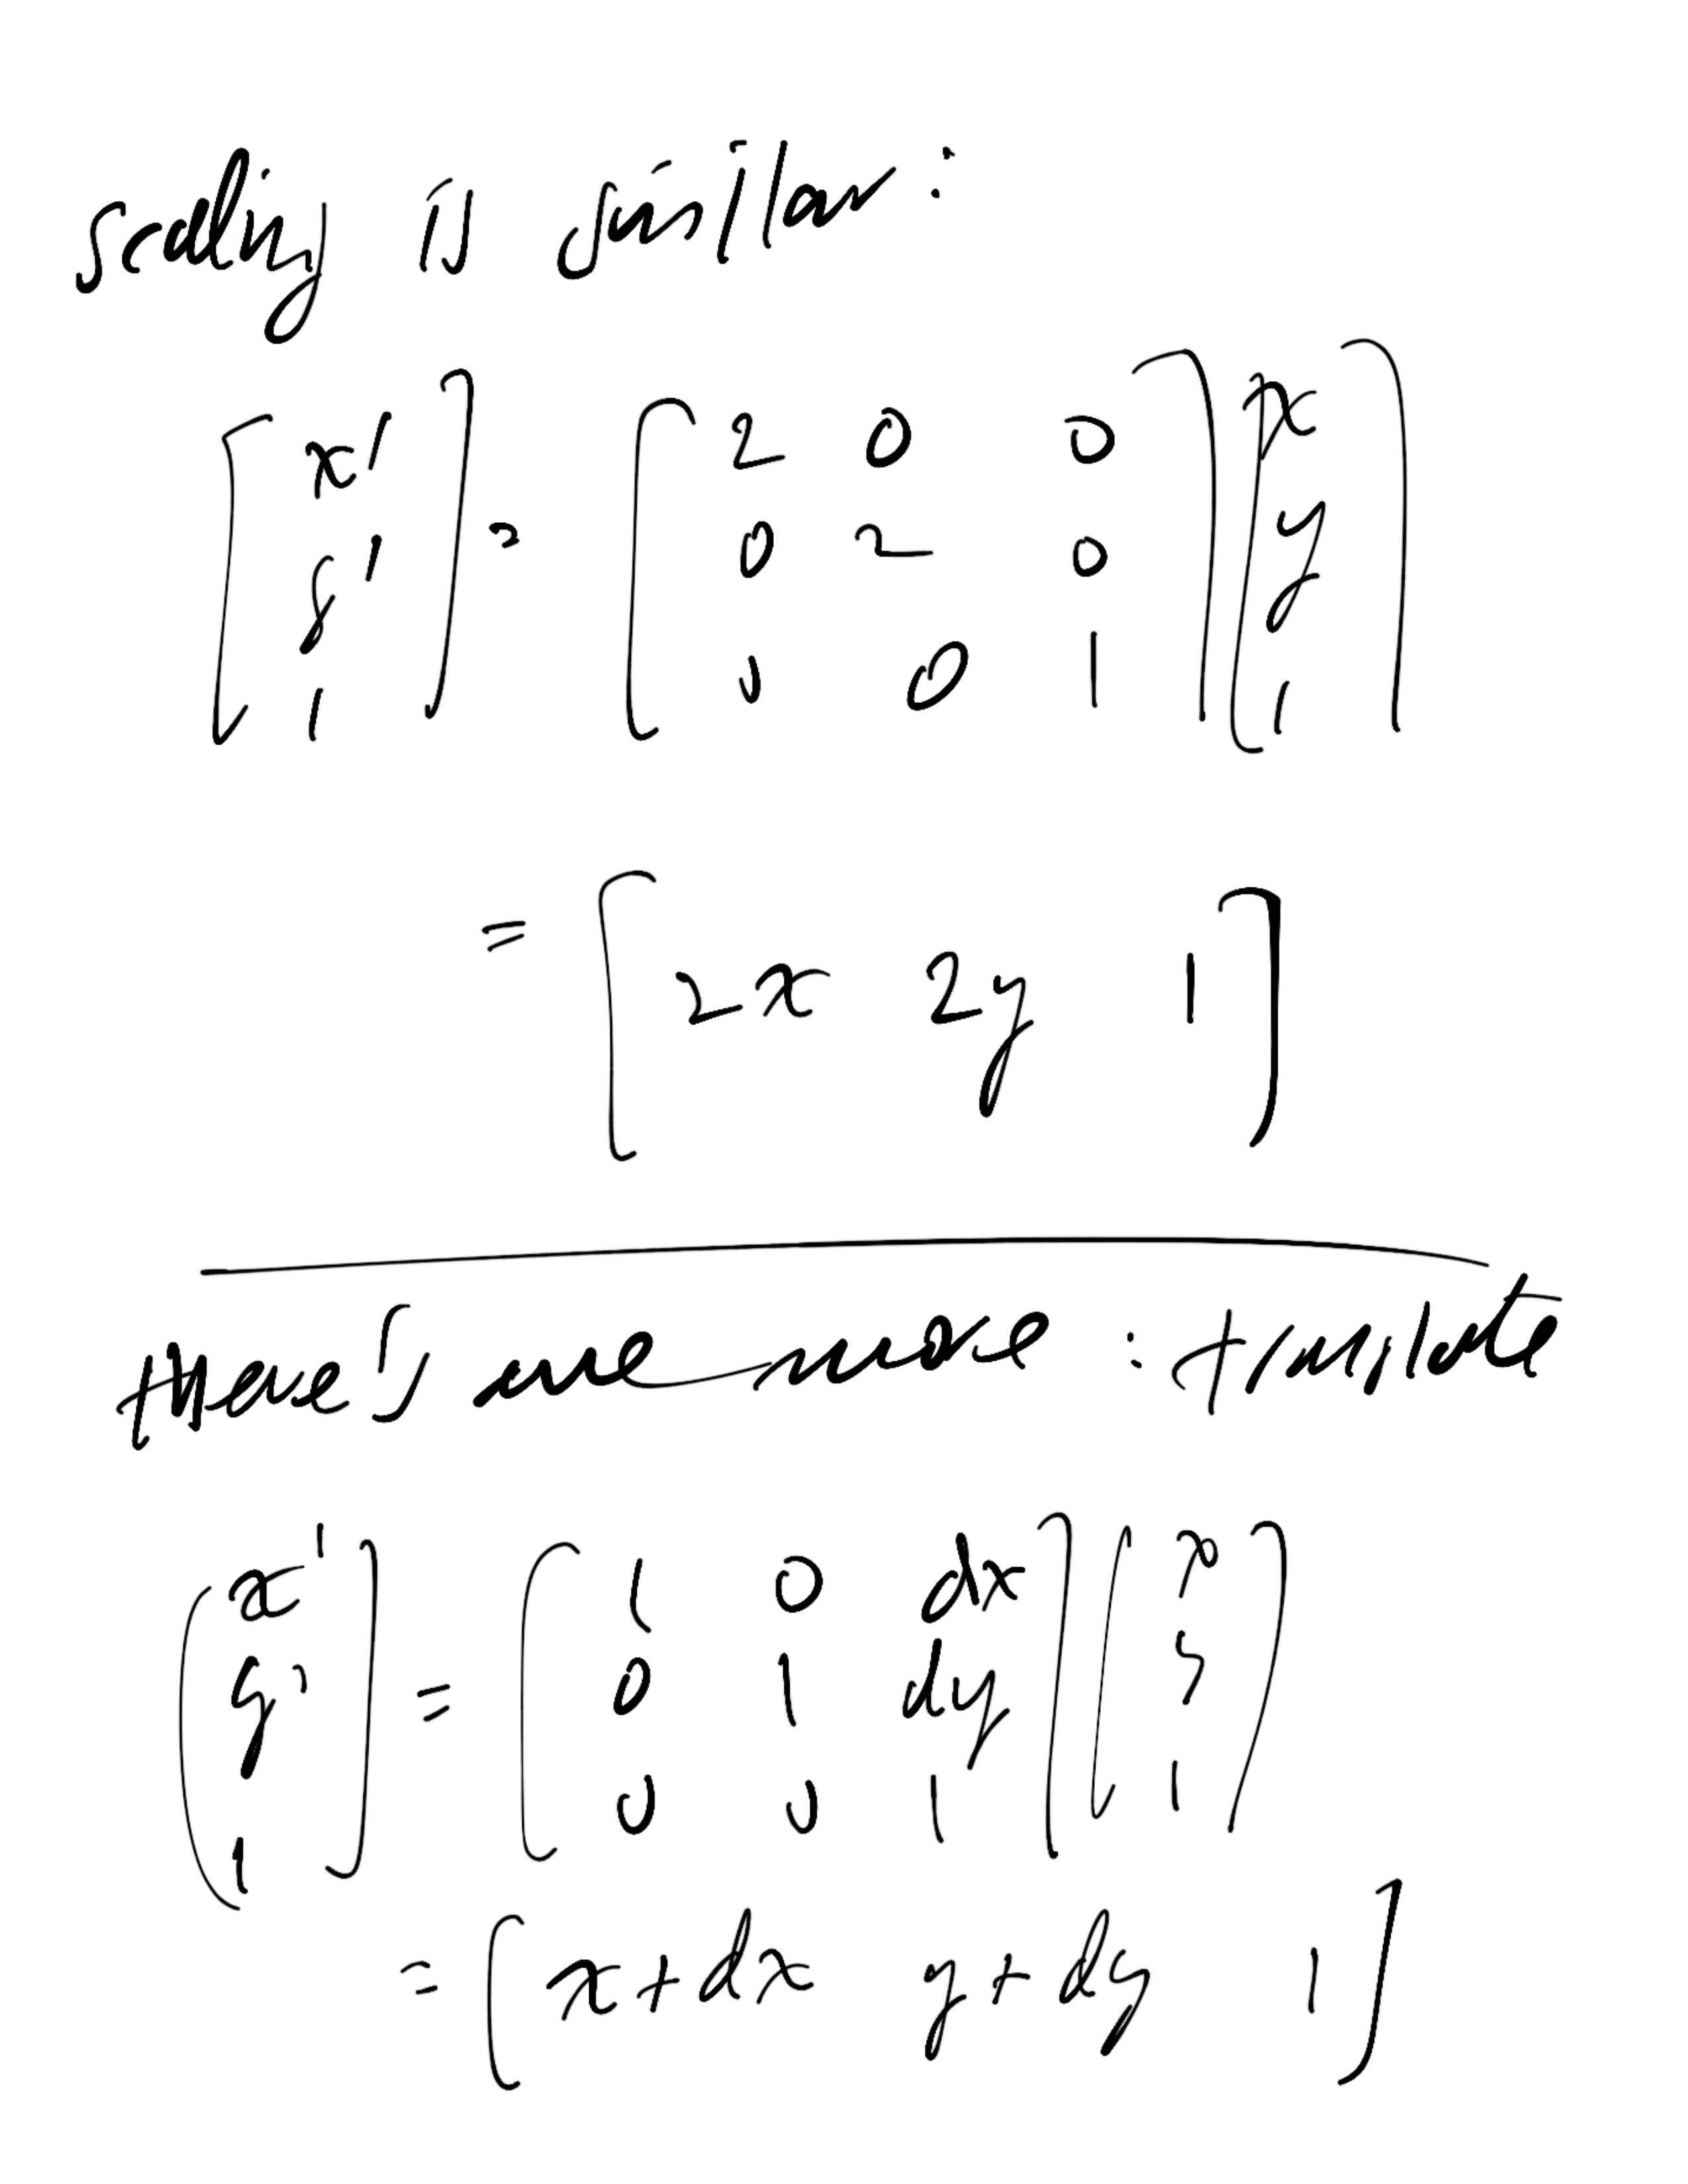 scaling is similar:
[x' y' 1] = [2 0 0; 0 2 0; 0 0 1] [x y 1]
= [2x 2y 1]
there's one more: translate
[x' y' 1] = [1 0 dx; 0 1 dy; 0 0 1] [x y 1]
= [x+dx y+dy 1]